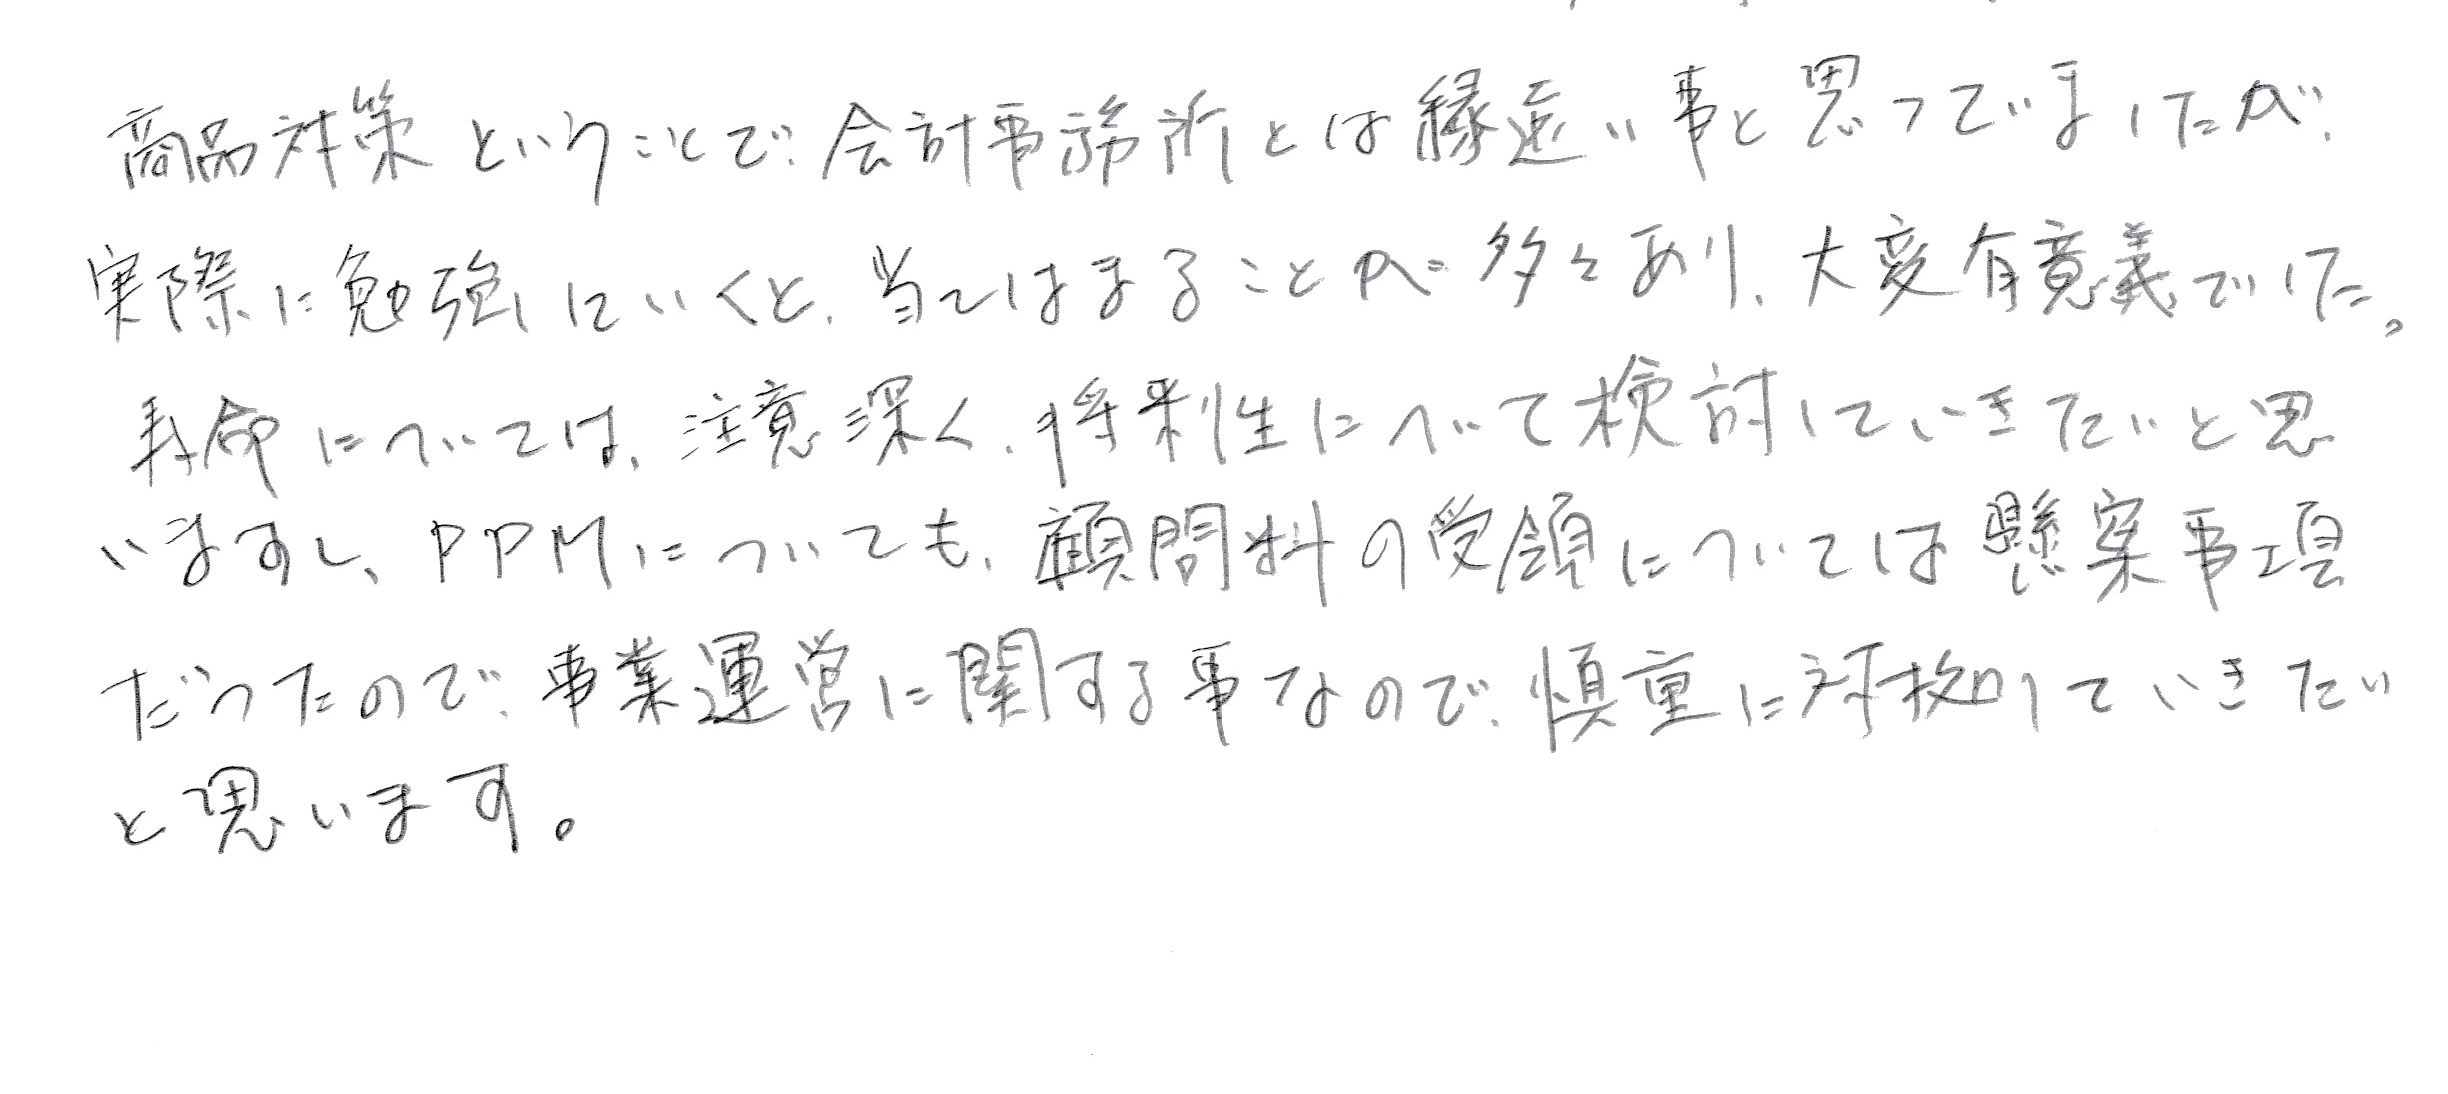 商品対策ということで、会計事務所とは縁遠い事と思っていましたが、
実際に勉強していくと、当てはまることが多々あり、大変有意義でした。
寿命については、注意深く、将来性について検討していきたいと思
いますし、PPMについても、顧問料の受領については懸案事項
だったので、事業運営に関する事なので、慎重に対処していきたい
と思います。